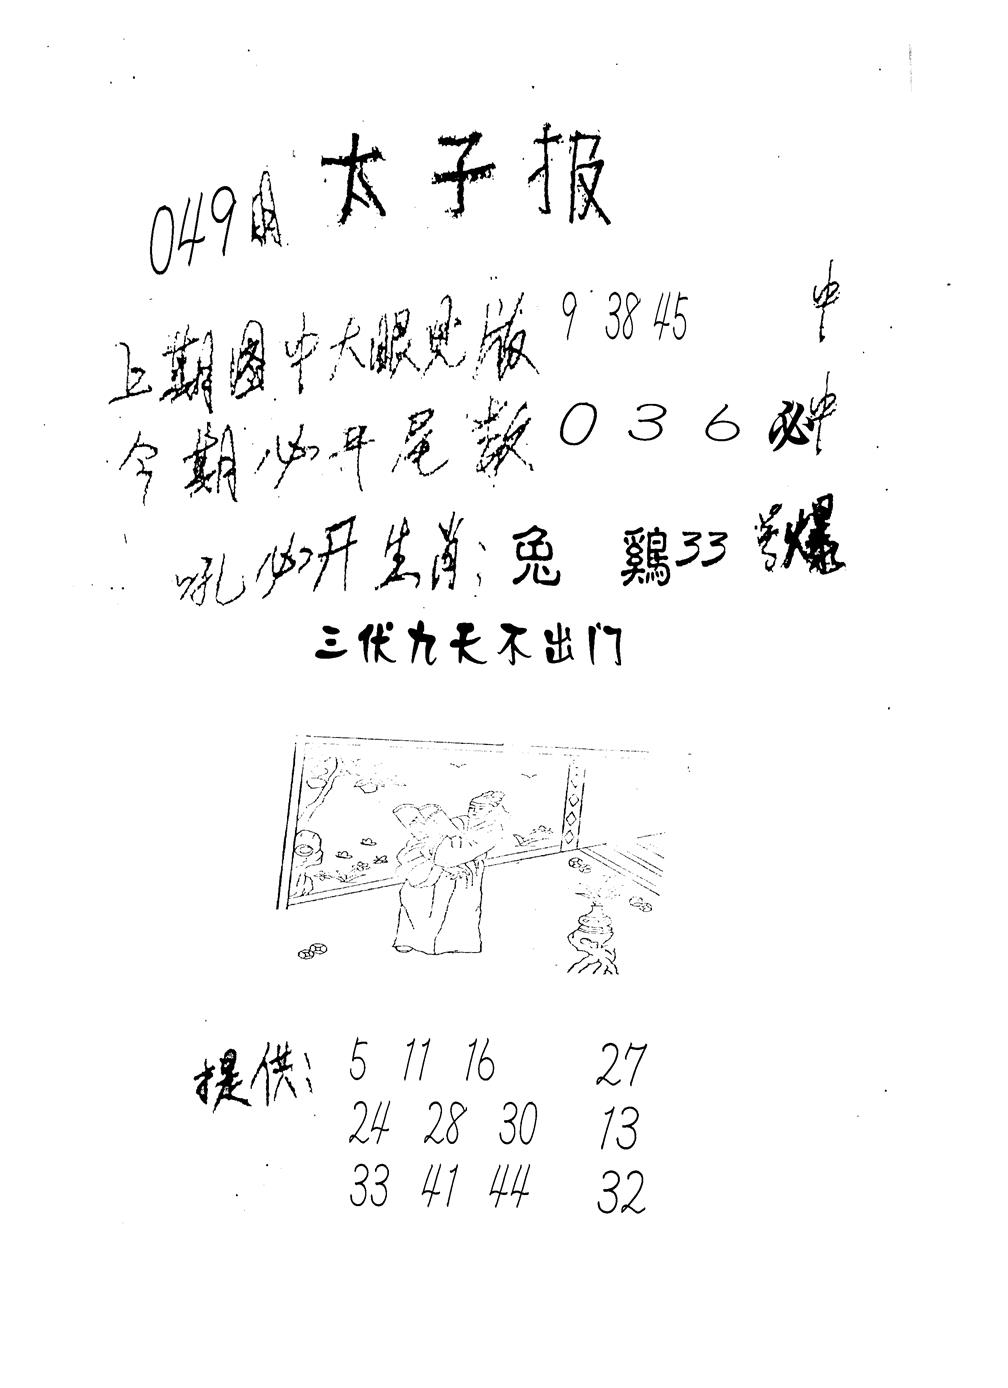 太子报
049期
上期图中大眼见版 9 38 45 中
今期必开尾数 0 3 6 必中
吼必开生肖：兔 鷄 33 号爆
三伏九天不出门
提供：5 11 16 27
24 28 30 13
33 41 44 32